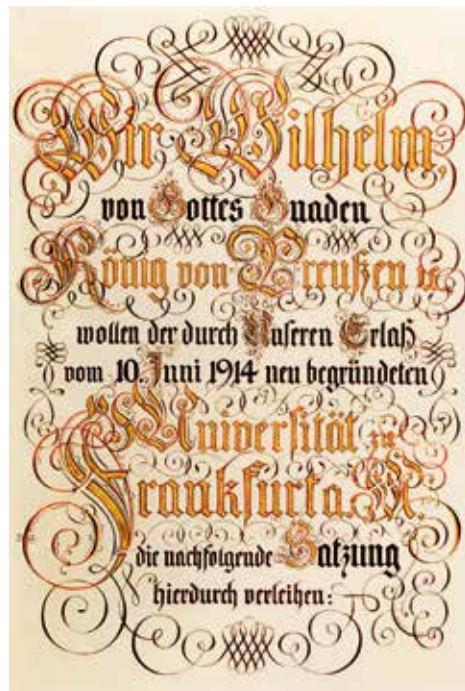 Wir Wilhelm,
von Gottes Gnaden
König von Preußen
wollen der durch Unseren Erlaß
vom 10. Juni 1914 neu begründeten
Universität zu
Frankfurt a. M.
die nachfolgende Satzung
hierdurch verleihen: